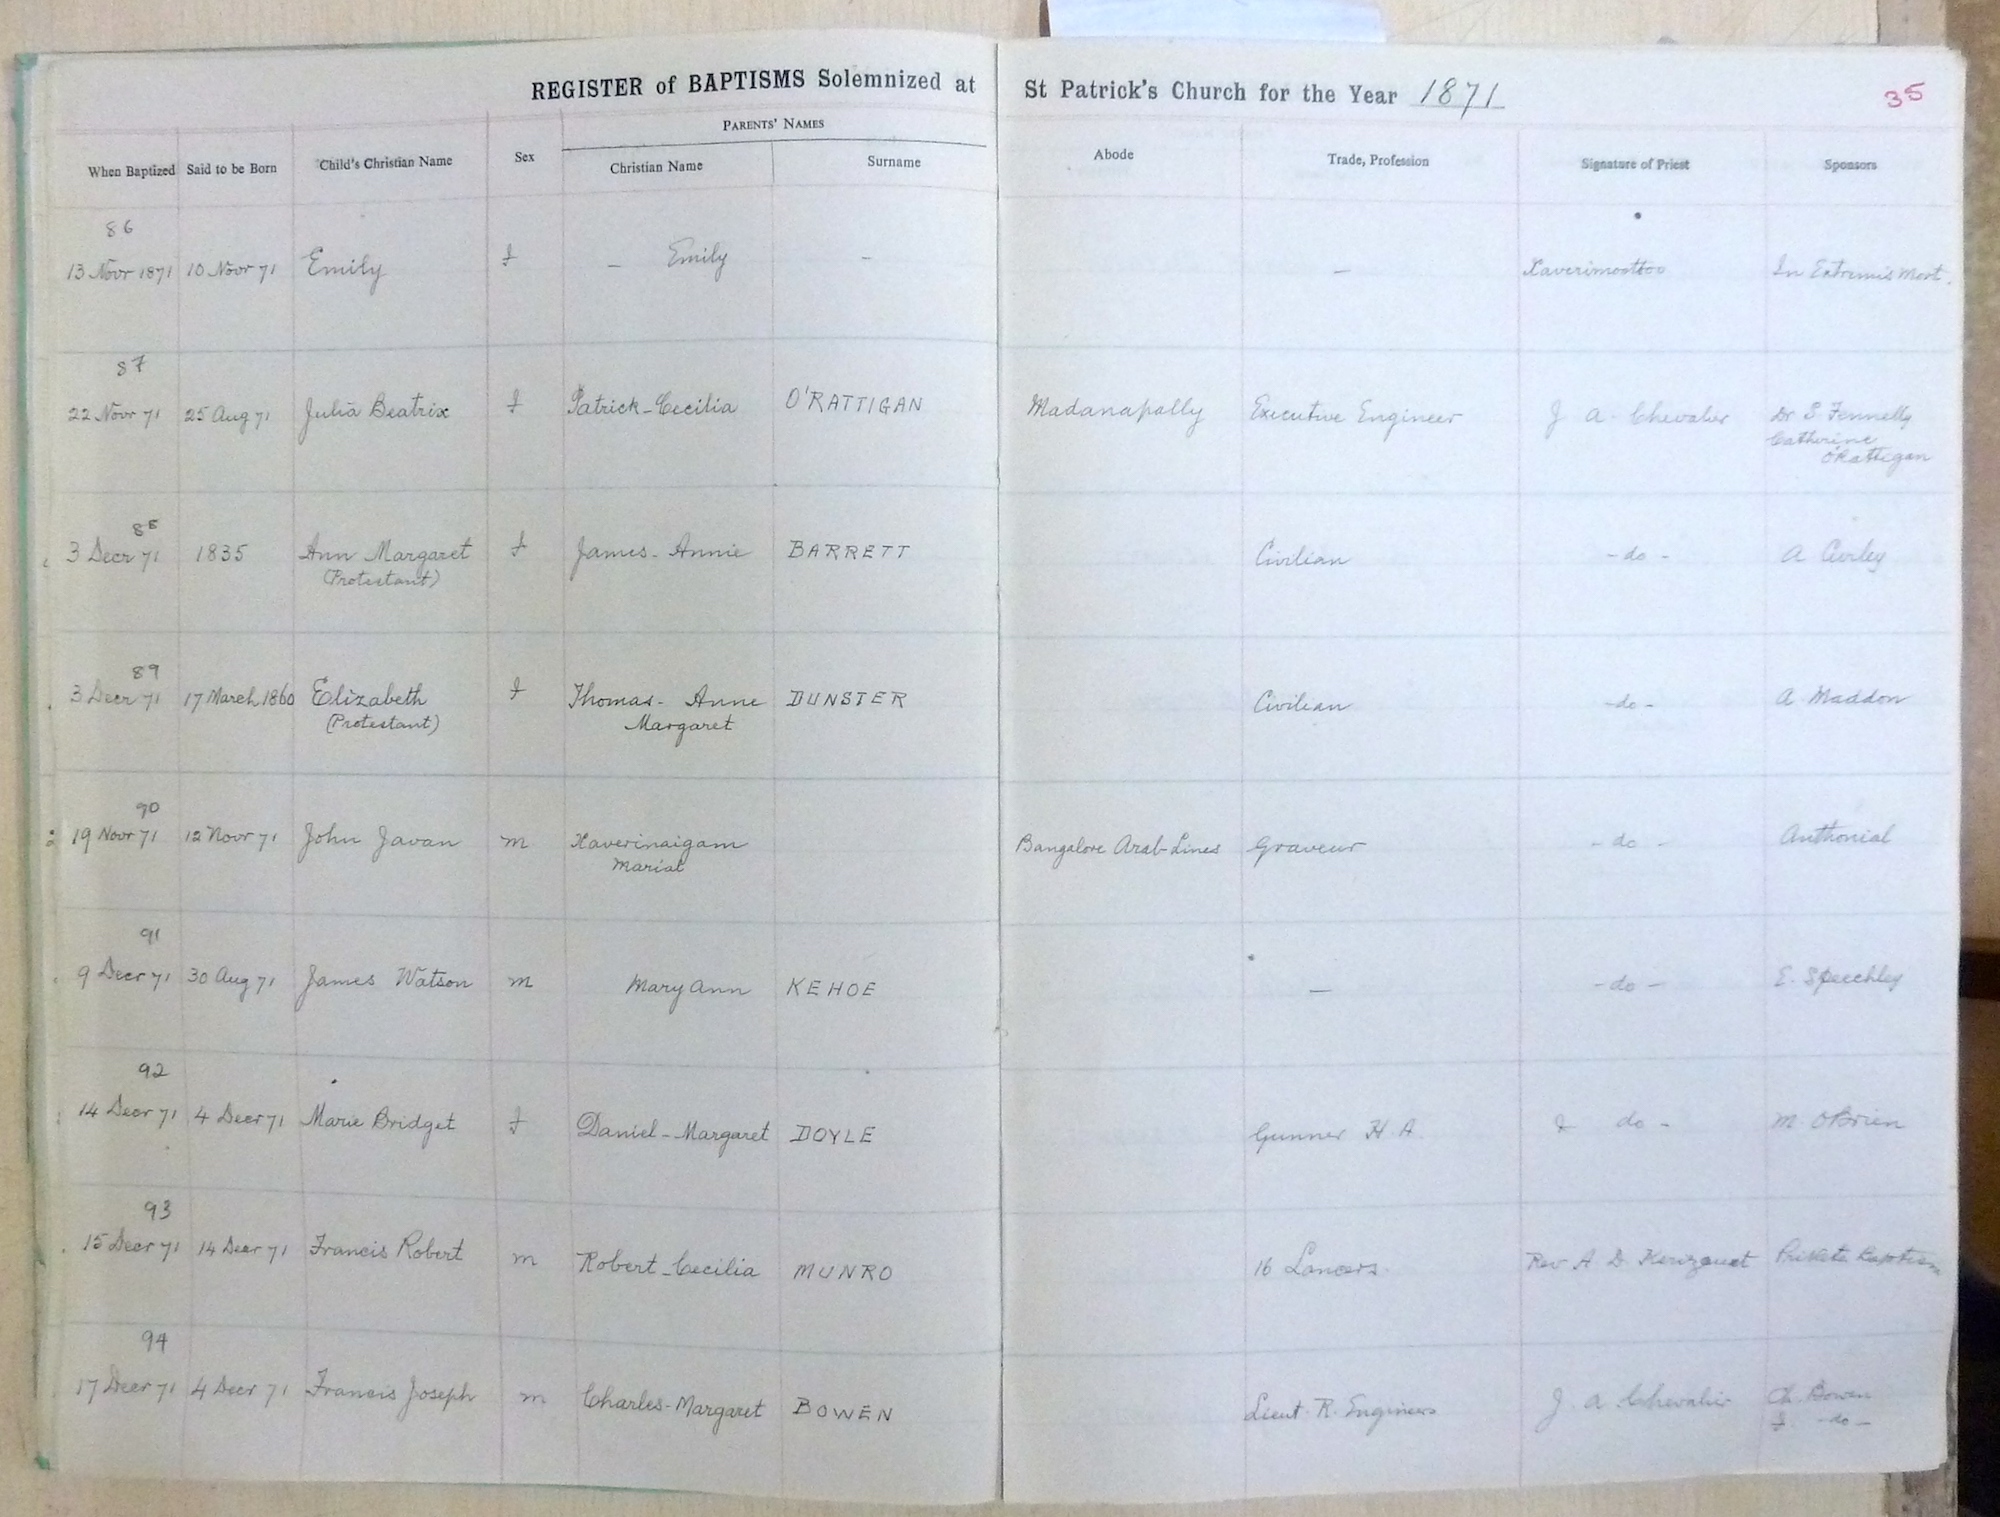 REGISTER of BAPTISMS Solemnized at St Patrick's Church for the Year 1871
35
When Baptized Said to be Born Child's Christian Name Sex PARENTS' NAMES Christian Name Surname Abode Trade, Profession Signature of Priest Sponsors
86
13 Novr 1871 10 Novr 71 Emily f – Emily – – Xaverimoottoo In Extremis Mort.
87
22 Novr 71 25 Aug 71 Julia Beatrix f Patrick-Cecilia O'RATTIGAN Madanapally Executive Engineer J A. Chevalier Dr S Fennelly
Catherine
O'Rattigan
88
3 Decr 71 1835 Ann Margaret f James - Annie BARRETT Civilian - do - A
(Protestant)
89
3 Decr 71 17 March 1860 Elizabeth f Thomas - Anne DUNSTER Civilian -do- A Maddon
(Protestant) Margaret
90
19 Novr 71 12 Novr 71 John Javan m Xaverinaigam Bangalore Arab-Lines Graveur - do - Anthonial
Marial
91
9 Decr 71 30 Aug 71 James Watson m Mary Ann KEHOE – - do - E. Speechley
92
14 Decr 71 4 Decr 71 Marie Bridget f Daniel-Margaret DOYLE Gunner H.A. do - M. OBrien
93
15 Decr 71 14 Decr 71 Francis Robert m Robert-Cecilia MUNRO 16 Lancers. Rev A D Private Baptism
94
17 Decr 71 4 Decr 71 Francis Joseph m Charles-Margaret BOWEN Lieut. R. Engineers J. A Chevalier Ch. Bowen
J. -do-